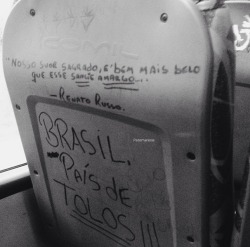 "NOSSO SUOR SAGRADO, É BEM MAIS BELO
QUE ESSE SANGUE AMARGO...
- RENATO RUSSO.
BRASIL,
PAÍS DE
TOLOS!!!